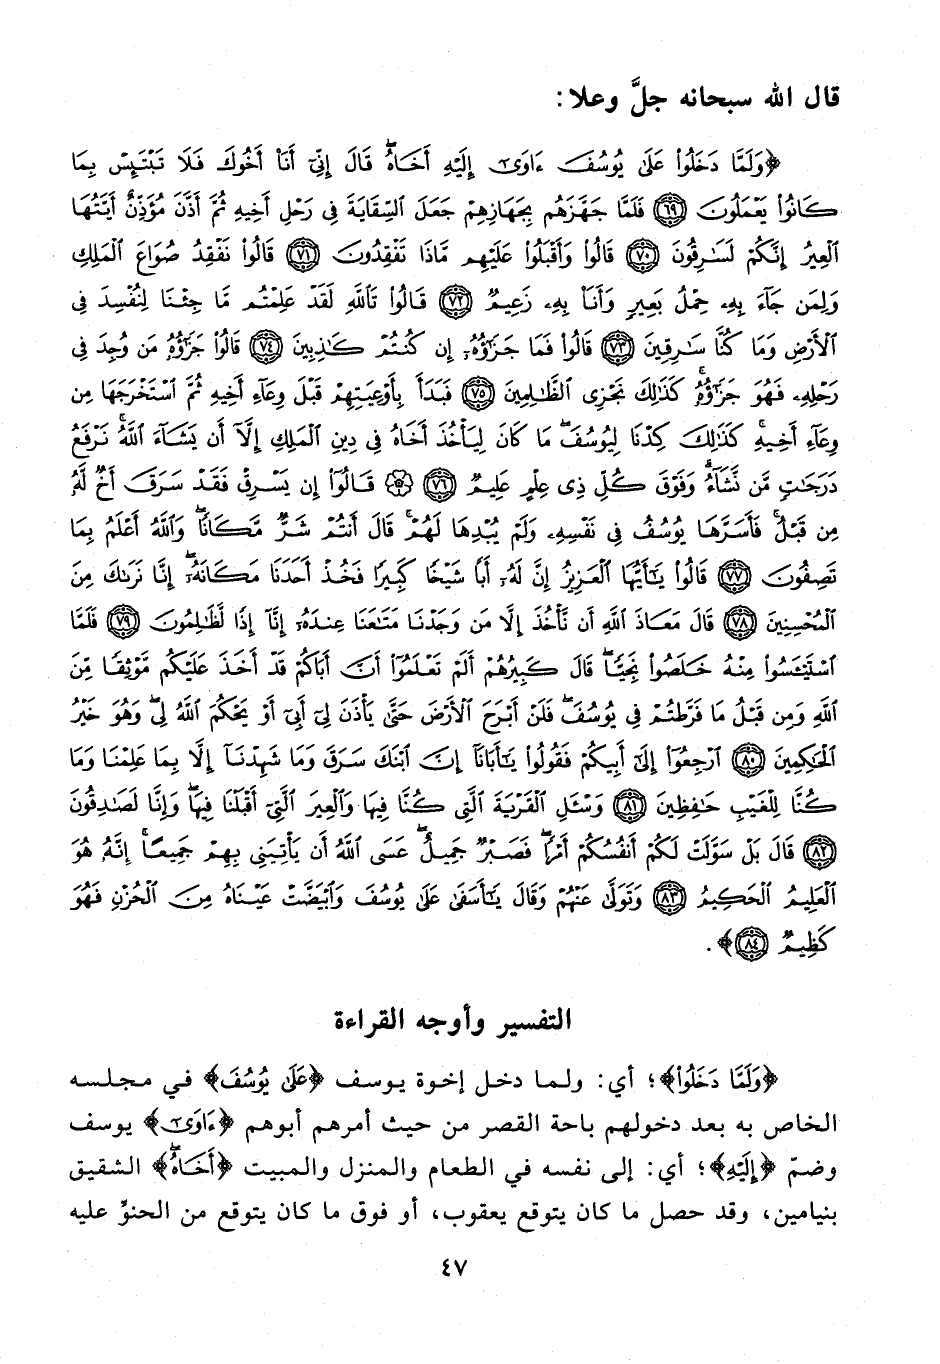 قال الله سبحانه جلَّ وعلا:
﴿وَلَمَّا دَخَلُوا۟ عَلَىٰ يُوسُفَ ءَاوَىٰٓ إِلَيْهِ أَخَاهُ ۖ قَالَ إِنِّىٓ أَنَا۠ أَخُوكَ فَلَا تَبْتَئِسْ بِمَا
كَانُوا۟ يَعْمَلُونَ ٦٩ فَلَمَّا جَهَّزَهُم بِجَهَازِهِمْ جَعَلَ ٱلسِّقَايَةَ فِى رَحْلِ أَخِيهِ ثُمَّ أَذَّنَ مُؤَذِّنٌ أَيَّتُهَا
ٱلْعِيرُ إِنَّكُمْ لَسَٰرِقُونَ ٧٠ قَالُوا۟ وَأَقْبَلُوا۟ عَلَيْهِم مَّاذَا تَفْقِدُونَ ٧١ قَالُوا۟ نَفْقِدُ صُوَاعَ ٱلْمَلِكِ
وَلِمَن جَآءَ بِهِۦ حِمْلُ بَعِيرٍ وَأَنَا۠ بِهِۦ زَعِيمٌ ٧٢ قَالُوا۟ تَٱللَّهِ لَقَدْ عَلِمْتُم مَّا جِئْنَا لِنُفْسِدَ فِى
ٱلْأَرْضِ وَمَا كُنَّا سَٰرِقِينَ ٧٣ قَالُوا۟ فَمَا جَزَٰٓؤُهُۥٓ إِن كُنتُمْ كَٰذِبِينَ ٧٤ قَالُوا۟ جَزَٰٓؤُهُۥ مَن وُجِدَ فِى
رَحْلِهِۦ فَهُوَ جَزَٰٓؤُهُۥ ۚ كَذَٰلِكَ نَجْزِى ٱلظَّٰلِمِينَ ٧٥ فَبَدَأَ بِأَوْعِيَتِهِمْ قَبْلَ وِعَآءِ أَخِيهِ ثُمَّ ٱسْتَخْرَجَهَا مِن
وِعَآءِ أَخِيهِ ۚ كَذَٰلِكَ كِدْنَا لِيُوسُفَ ۖ مَا كَانَ لِيَأْخُذَ أَخَاهُ فِى دِينِ ٱلْمَلِكِ إِلَّآ أَن يَشَآءَ ٱللَّهُ ۚ نَرْفَعُ
دَرَجَٰتٍ مَّن نَّشَآءُ ۗ وَفَوْقَ كُلِّ ذِى عِلْمٍ عَلِيمٌ ٧٦ ۞ قَالُوٓا۟ إِن يَسْرِقْ فَقَدْ سَرَقَ أَخٌ لَّهُۥ
مِن قَبْلُ ۚ فَأَسَرَّهَا يُوسُفُ فِى نَفْسِهِۦ وَلَمْ يُبْدِهَا لَهُمْ ۚ قَالَ أَنتُمْ شَرٌّ مَّكَانًا ۖ وَٱللَّهُ أَعْلَمُ بِمَا
تَصِفُونَ ٧٧ قَالُوا۟ يَٰٓأَيُّهَا ٱلْعَزِيزُ إِنَّ لَهُۥٓ أَبًا شَيْخًا كَبِيرًا فَخُذْ أَحَدَنَا مَكَانَهُۥٓ ۖ إِنَّا نَرَىٰكَ مِنَ
ٱلْمُحْسِنِينَ ٧٨ قَالَ مَعَاذَ ٱللَّهِ أَن نَّأْخُذَ إِلَّا مَن وَجَدْنَا مَتَٰعَنَا عِندَهُۥٓ إِنَّآ إِذًا لَّظَٰلِمُونَ ٧٩ فَلَمَّا
ٱسْتَيْـَٔسُوا۟ مِنْهُ خَلَصُوا۟ نَجِيًّا ۖ قَالَ كَبِيرُهُمْ أَلَمْ تَعْلَمُوٓا۟ أَنَّ أَبَاكُمْ قَدْ أَخَذَ عَلَيْكُم مَّوْثِقًا مِّنَ
ٱللَّهِ وَمِن قَبْلُ مَا فَرَّطتُمْ فِى يُوسُفَ ۖ فَلَنْ أَبْرَحَ ٱلْأَرْضَ حَتَّىٰ يَأْذَنَ لِىٓ أَبِىٓ أَوْ يَحْكُمَ ٱللَّهُ لِى ۖ وَهُوَ خَيْرُ
ٱلْحَٰكِمِينَ ٨٠ ٱرْجِعُوٓا۟ إِلَىٰٓ أَبِيكُمْ فَقُولُوا۟ يَٰٓأَبَانَآ إِنَّ ٱبْنَكَ سَرَقَ وَمَا شَهِدْنَآ إِلَّا بِمَا عَلِمْنَا وَمَا
كُنَّا لِلْغَيْبِ حَٰفِظِينَ ٨١ وَسْـَٔلِ ٱلْقَرْيَةَ ٱلَّتِى كُنَّا فِيهَا وَٱلْعِيرَ ٱلَّتِىٓ أَقْبَلْنَا فِيهَا ۖ وَإِنَّا لَصَٰدِقُونَ
٨٢ قَالَ بَلْ سَوَّلَتْ لَكُمْ أَنفُسُكُمْ أَمْرًا ۖ فَصَبْرٌ جَمِيلٌ ۖ عَسَى ٱللَّهُ أَن يَأْتِيَنِى بِهِمْ جَمِيعًا ۚ إِنَّهُۥ هُوَ
ٱلْعَلِيمُ ٱلْحَكِيمُ ٨٣ وَتَوَلَّىٰ عَنْهُمْ وَقَالَ يَٰٓأَسَفَىٰ عَلَىٰ يُوسُفَ وَٱبْيَضَّتْ عَيْنَاهُ مِنَ ٱلْحُزْنِ فَهُوَ
كَظِيمٌ ٨٤﴾.
التفسير وأوجه القراءة
﴿وَلَمَّا دَخَلُوا۟﴾؛ أي: ولما دخل إخوة يوسف ﴿عَلَىٰ يُوسُفَ﴾ في مجلسه
الخاص به بعد دخولهم باحة القصر من حيث أمرهم أبوهم ﴿ءَاوَىٰٓ﴾ يوسف
وضمّ ﴿إِلَيْهِ﴾؛ أي: إلى نفسه في الطعام والمنزل والمبيت ﴿أَخَاهُ ۖ﴾ الشقيق
بنيامين، وقد حصل ما كان يتوقع يعقوب، أو فوق ما كان يتوقع من الحنوّ عليه
٤٧